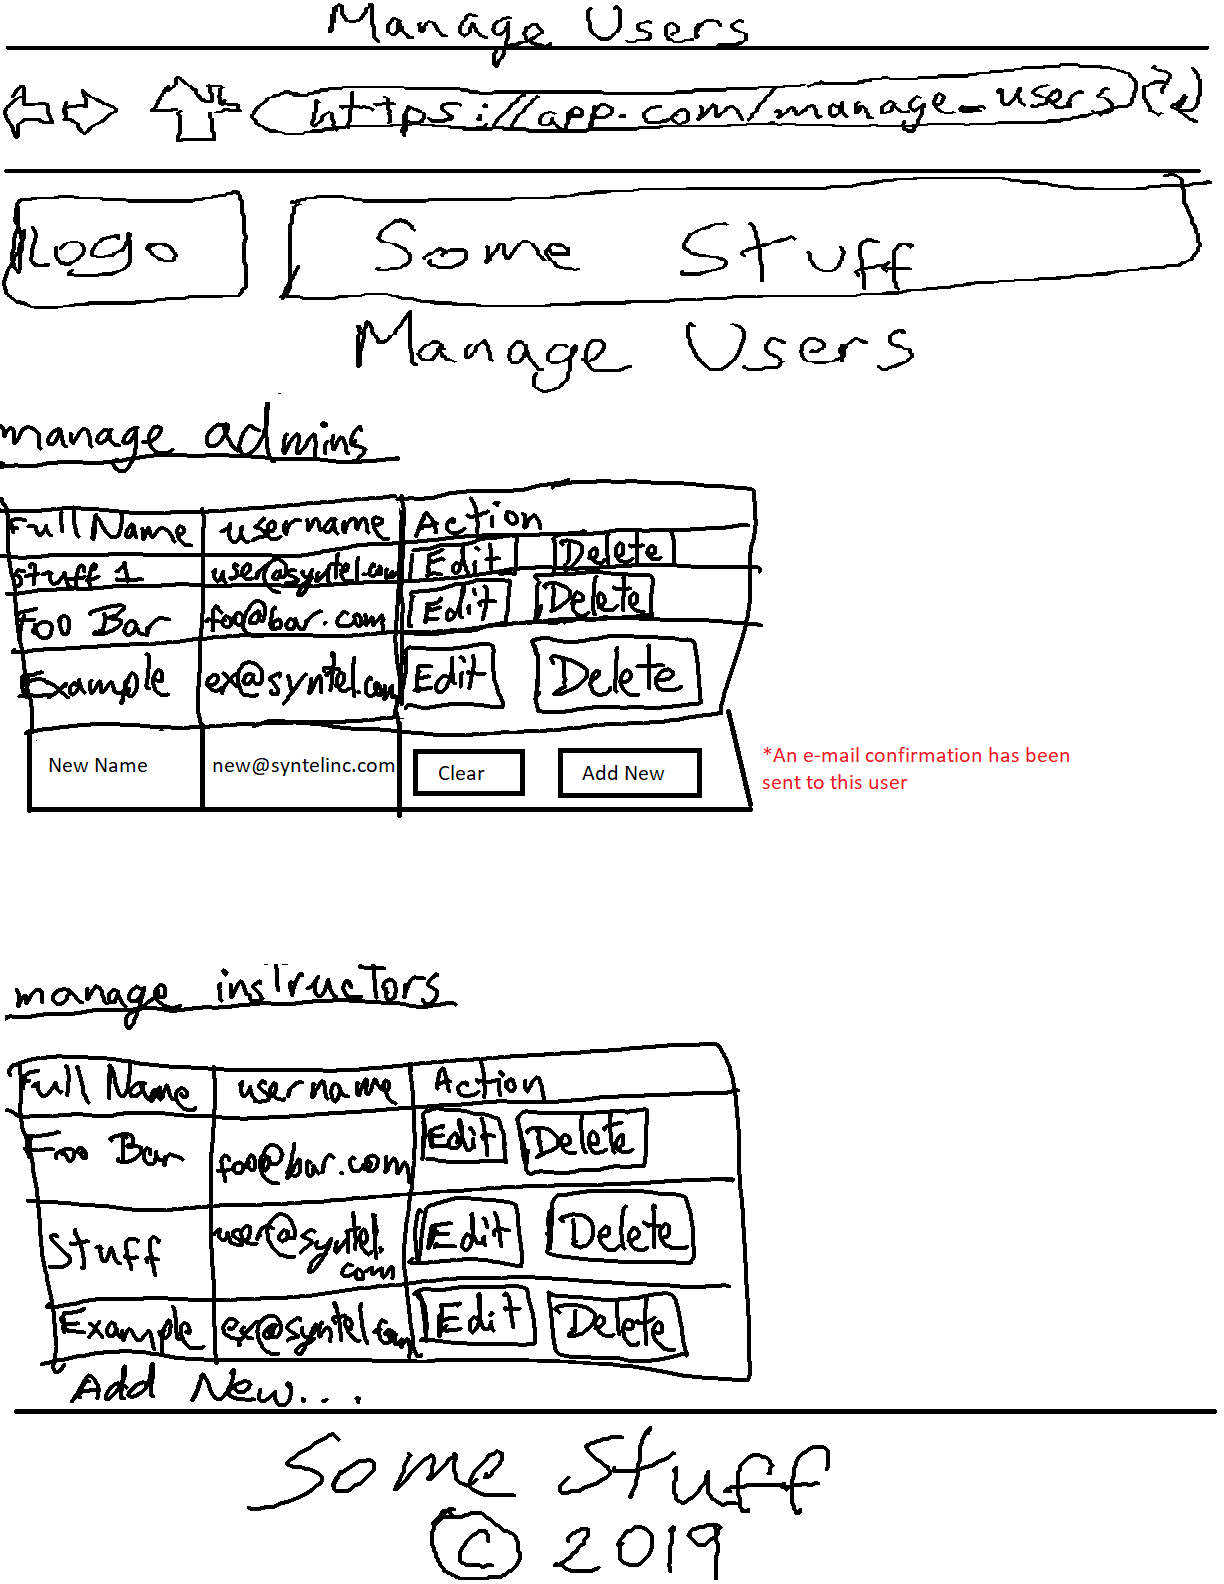 Manage Users
https://app.com/manage_users
Logo Some Stuff
Manage Users
manage admins
Full Name username Action
Stuff 1 user@syntel.com Edit Delete
Foo Bar foo@bar.com Edit Delete
Example ex@syntel.com Edit Delete
New Name new@syntelinc.com Clear Add New
*An e-mail confirmation has been
sent to this user
manage instructors
Full Name username Action
Foo Bar foo@bar.com Edit Delete
Stuff user@syntel. Edit Delete
com
Example ex@syntel.com Edit Delete
Add New...
Some Stuff
© 2019